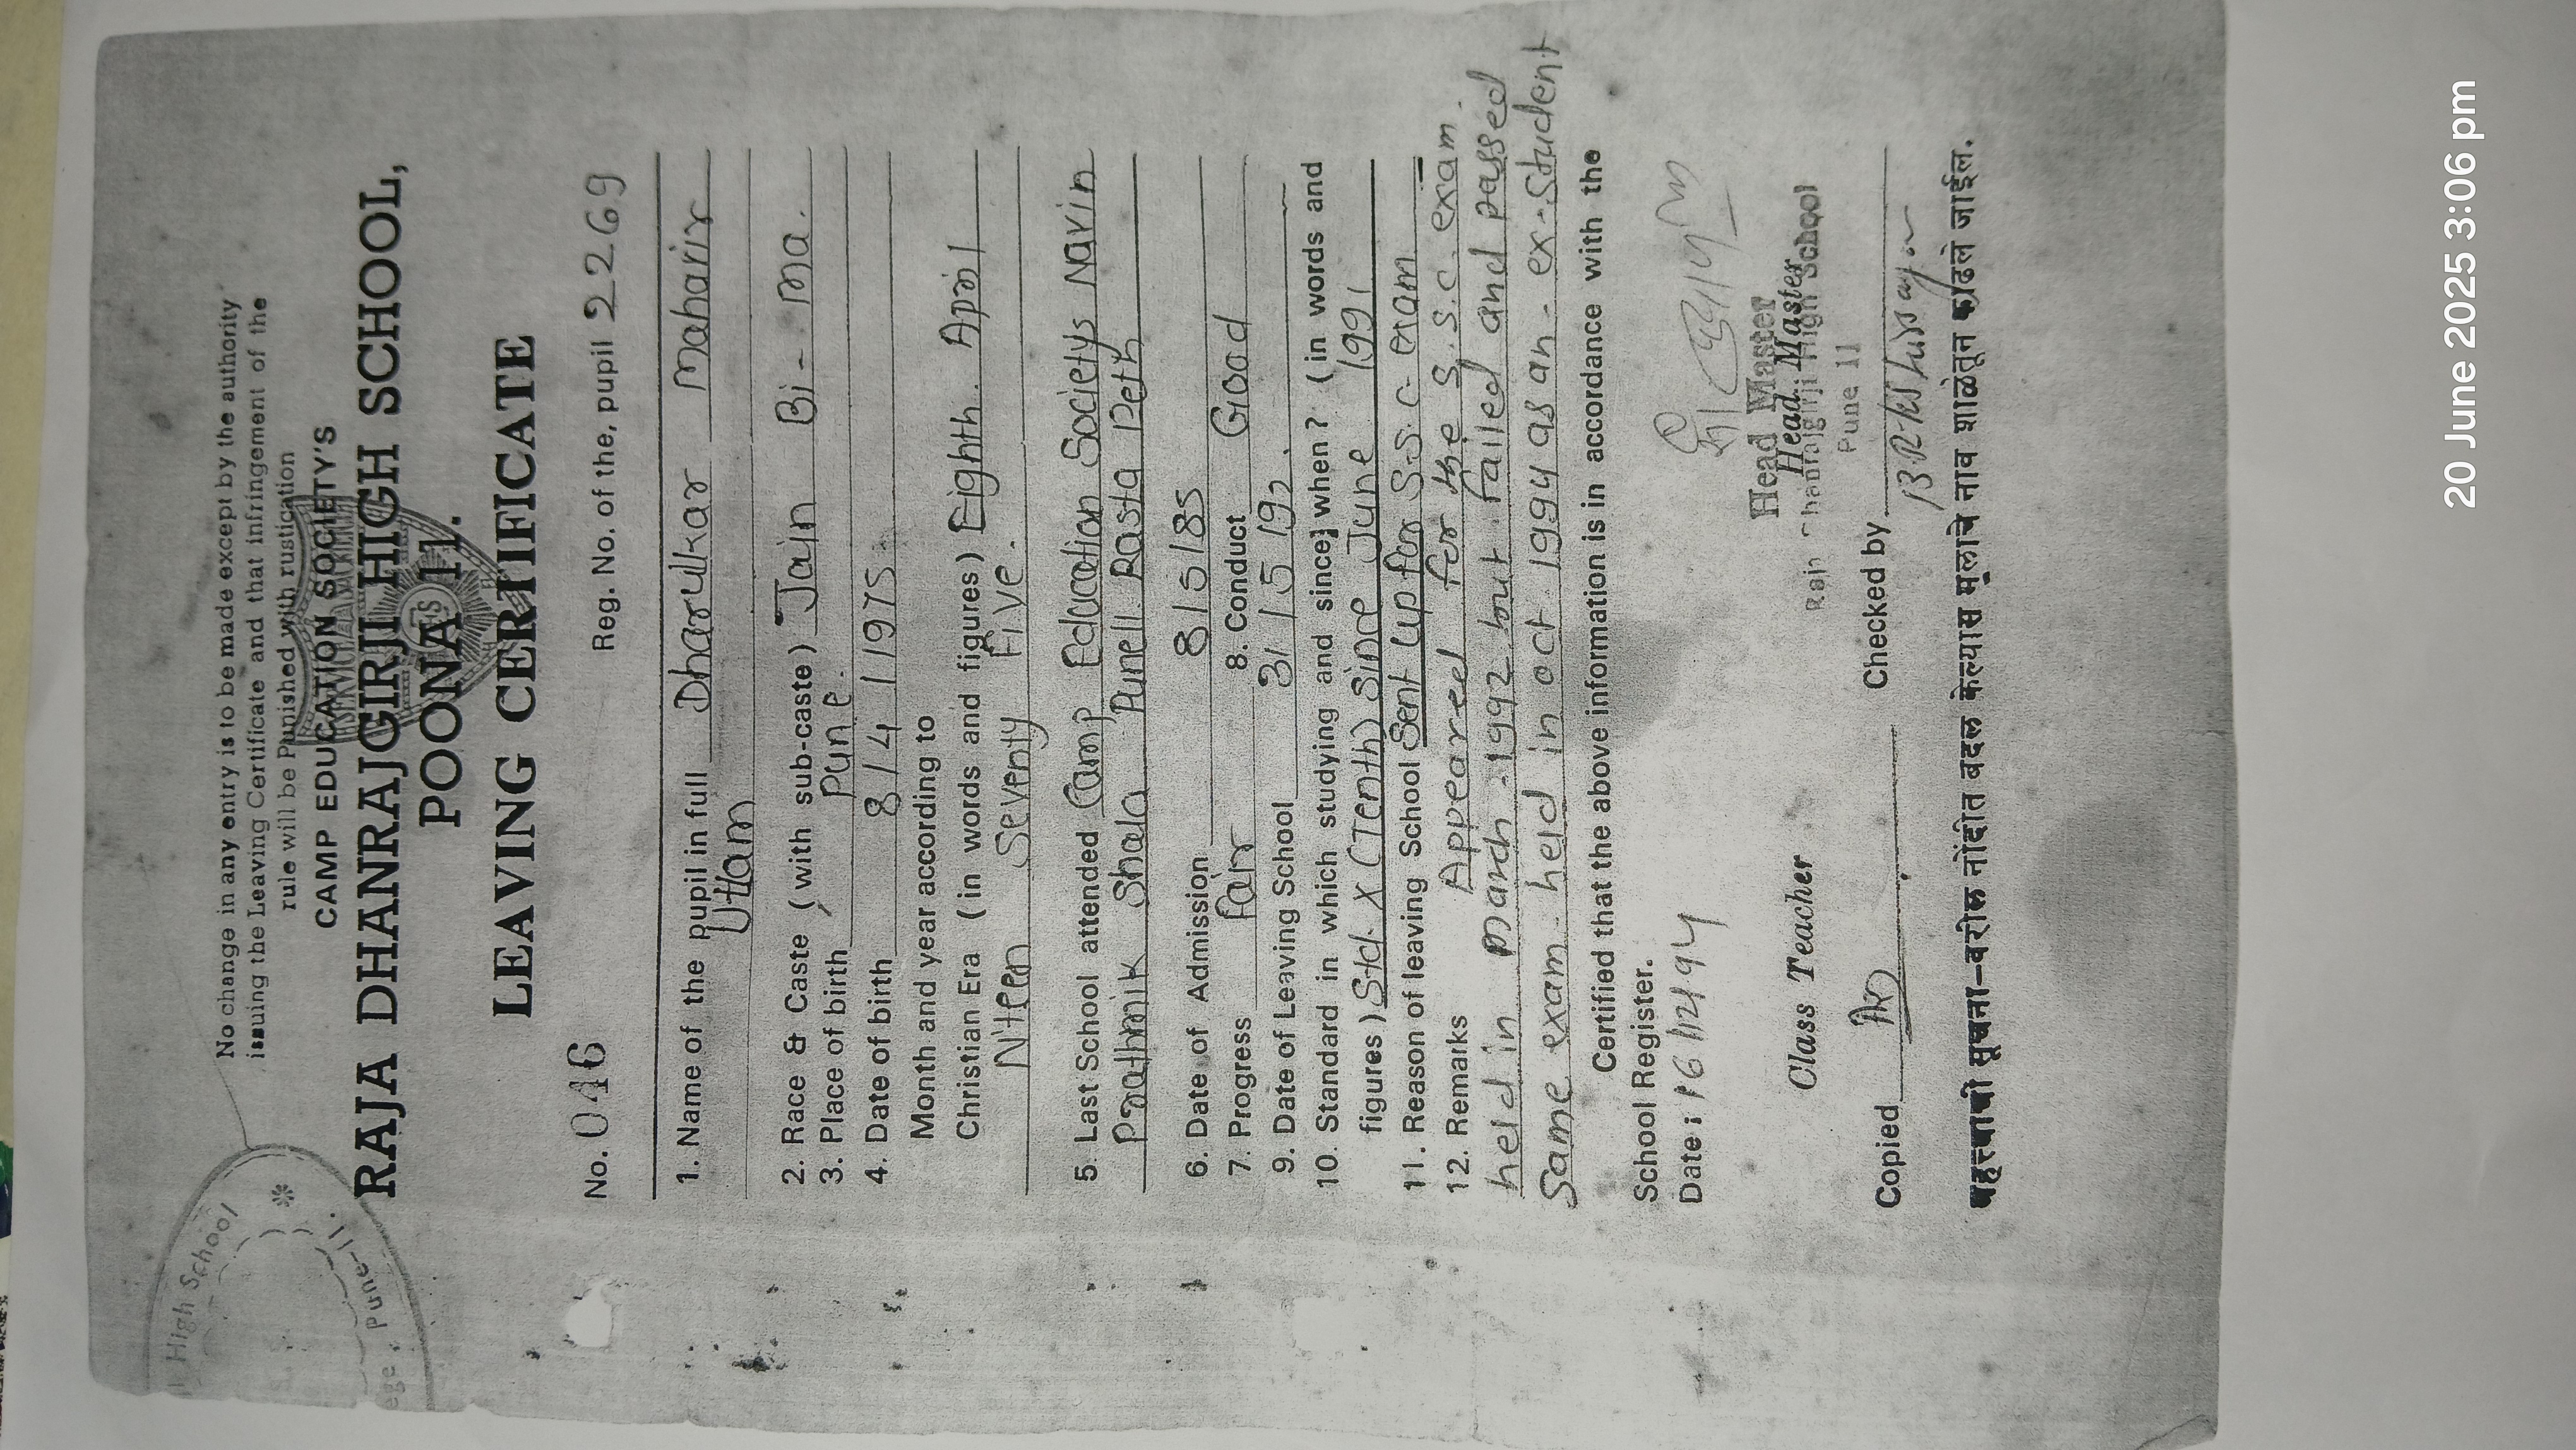 No change in any entry is to be made except by the authority
issuing the Leaving Certificate and that infringement of the
rule will be Punished with rustication
CAMP EDUCATION SOCIETY'S
RAJA DHANRAJGIRJI HIGH SCHOOL,
POONA 11.
LEAVING CERTIFICATE
High School
Pune-11.
No. 046 Reg. No. of the, pupil 2269
1. Name of the pupil in full Dharulkar Mahavir
Uttam
2. Race & Caste (with sub-caste) Jain Bi- Ma.
3. Place of birth Pune.
4. Date of birth 8/4/1975
Month and year according to
Christian Era (in words and figures) Eighth. April
Nteen Seventy Five.
5. Last School attended Camp Education Societys Navin
Prathmik Shala Pune11 Rasta Peth
6. Date of Admission 8/5/85
7. Progress Fair 8. Conduct Good
9. Date of Leaving School 31/5/92.
10. Standard in which studying and since] when? (in words and
figures) Std. X (Tenth) Since June 1991
11. Reason of leaving School Sent up for S.S.C exam
12. Remarks Appeared for the S.S.C. exam.
held in march-1992 but failed and passed
same exam held in oct 1994 as an-ex-student
Certified that the above information is in accordance with the
School Register.
Date: 16/12/94
Class Teacher
Head Master
Head Master
Raja Dhanrajgirji High School
Pune 11
Copied Checked by
महत्त्वाची सूचना–वरील नोंदीत बदल केल्यास मुलाचे नाव शाळेतून काढले जाईल.
20 June 2025 3:06 pm